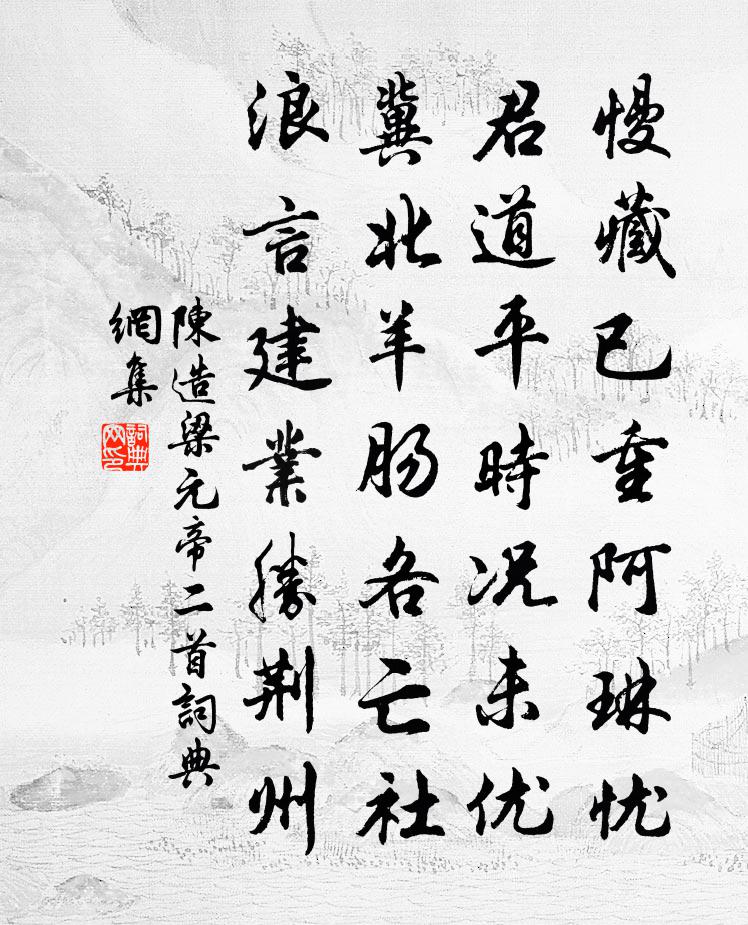 慢藏已重阿琳忧
君道平時况未优
冀北羊肠各亡社
浪言建業勝荆州
陳造梁元帝二首詞典
網集
詞典
网印